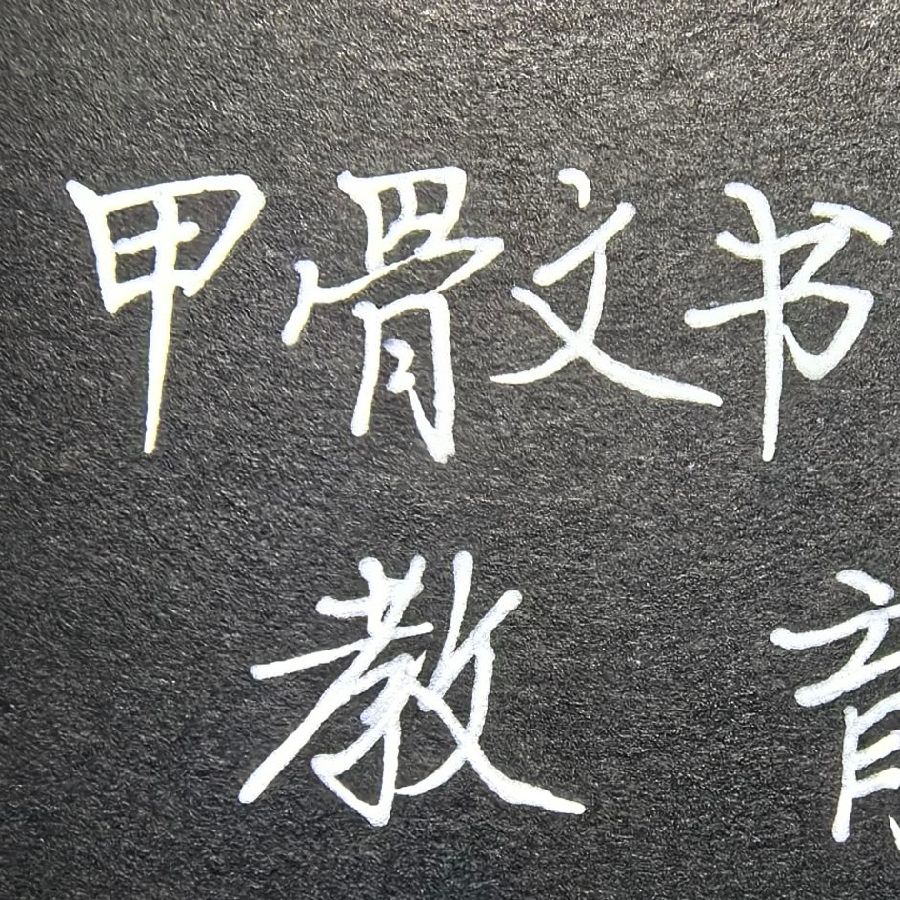 甲骨文书
教育